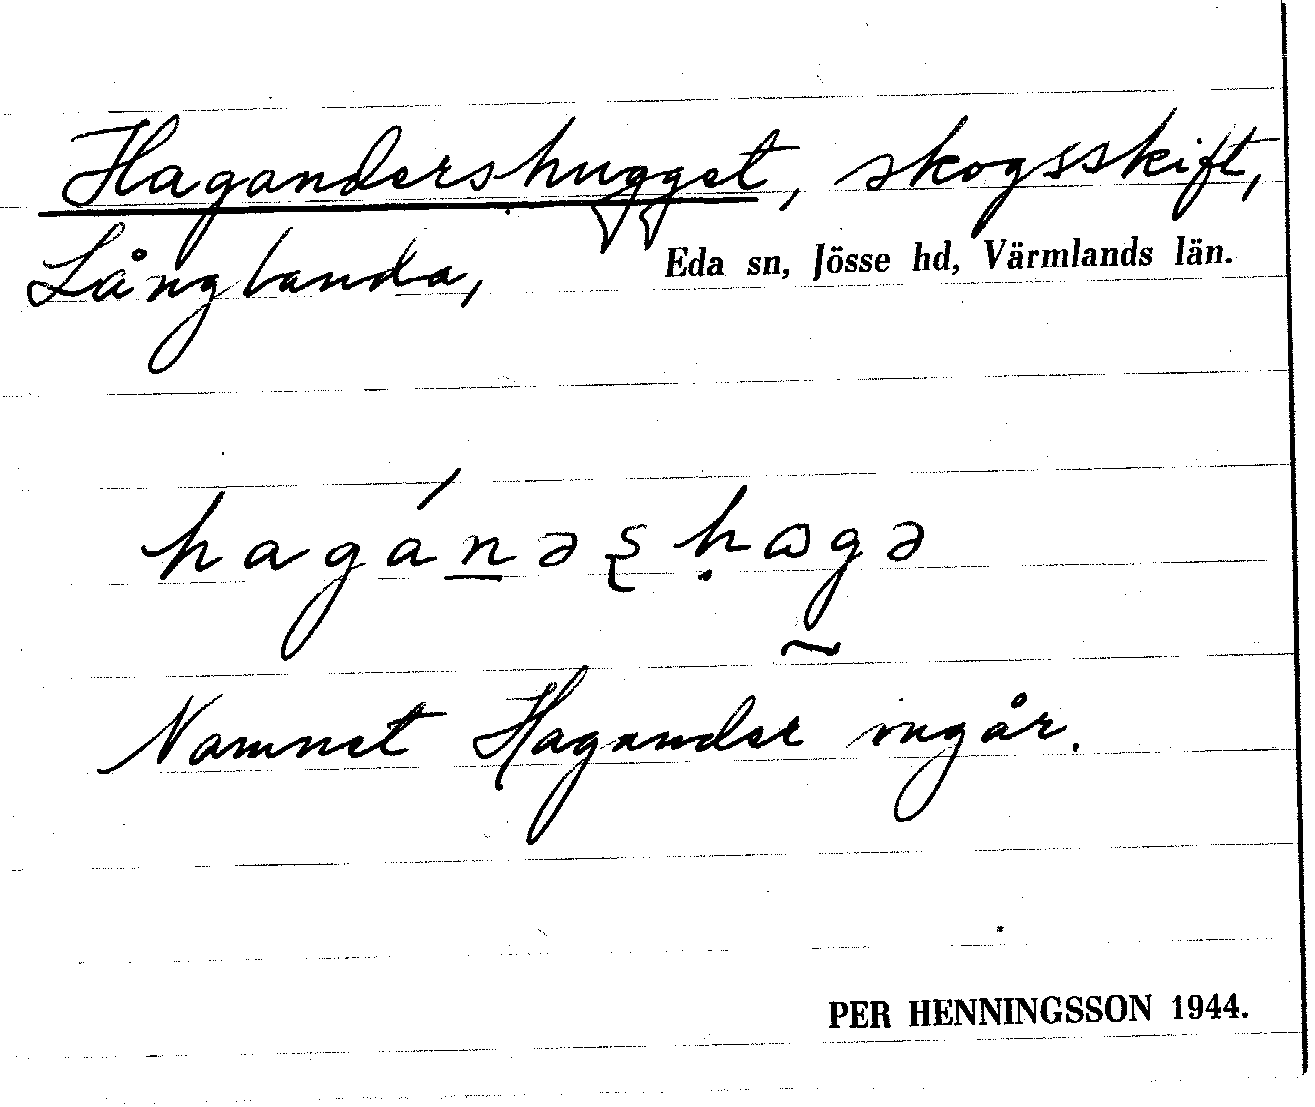 Hagandershugget, skogsskift,
Långlanda, Eda sn, Jösse hd, Värmlands län.
hagánəʂ hɷgə
Namnet Hagander ingår.
PER HENNINGSSON 1944.